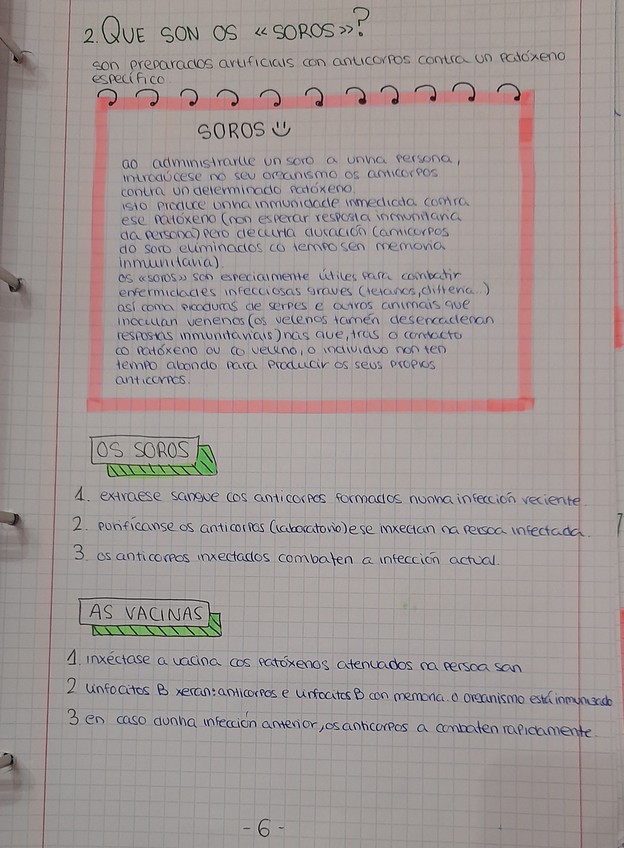 2. QUE SON OS «SOROS»?
son preparados artificiais con anticorpos contra un patóxeno
específico.
SOROS
ao administrarlle un soro a unha persona,
introdúcese no seu organismo os anticorpos
contra un determinado patóxeno.
isto produce unha inmunidade inmediata contra
ese patóxeno (non esperar resposta inmunitaria
da persona) pero de curta duración (anticorpos
do soro eliminados co tempo sen memoria
inmunitaria).
os «soros» son especialmente útiles para combatir
enfermidades infecciosas graves (tétanos, difteria...)
así coma picaduras de serpes e outros animais que
inoculan venenos (os velenos tamén desencadenan
respostas inmunitarias) nas que, tras o contacto
co patóxeno ou co veleno, o individuo non ten
tempo abondo para producir os seus propios
anticorpos.
OS SOROS
1. extraese sangue cos anticorpos formados nunha infección reciente.
2. purifícanse os anticorpos (laboratorio) e se inxectan na persoa infectada.
3. os anticorpos inxectados combaten a infección actual.
AS VACINAS
1. inxéctase a vacina cos patóxenos atenuados na persoa san
2 linfocitos B xeran: anticorpos e linfocitos B con memoria. o organismo está inmunizado
3 en caso dunha infección anterior, os anticorpos a combaten rapidamente.
-6-